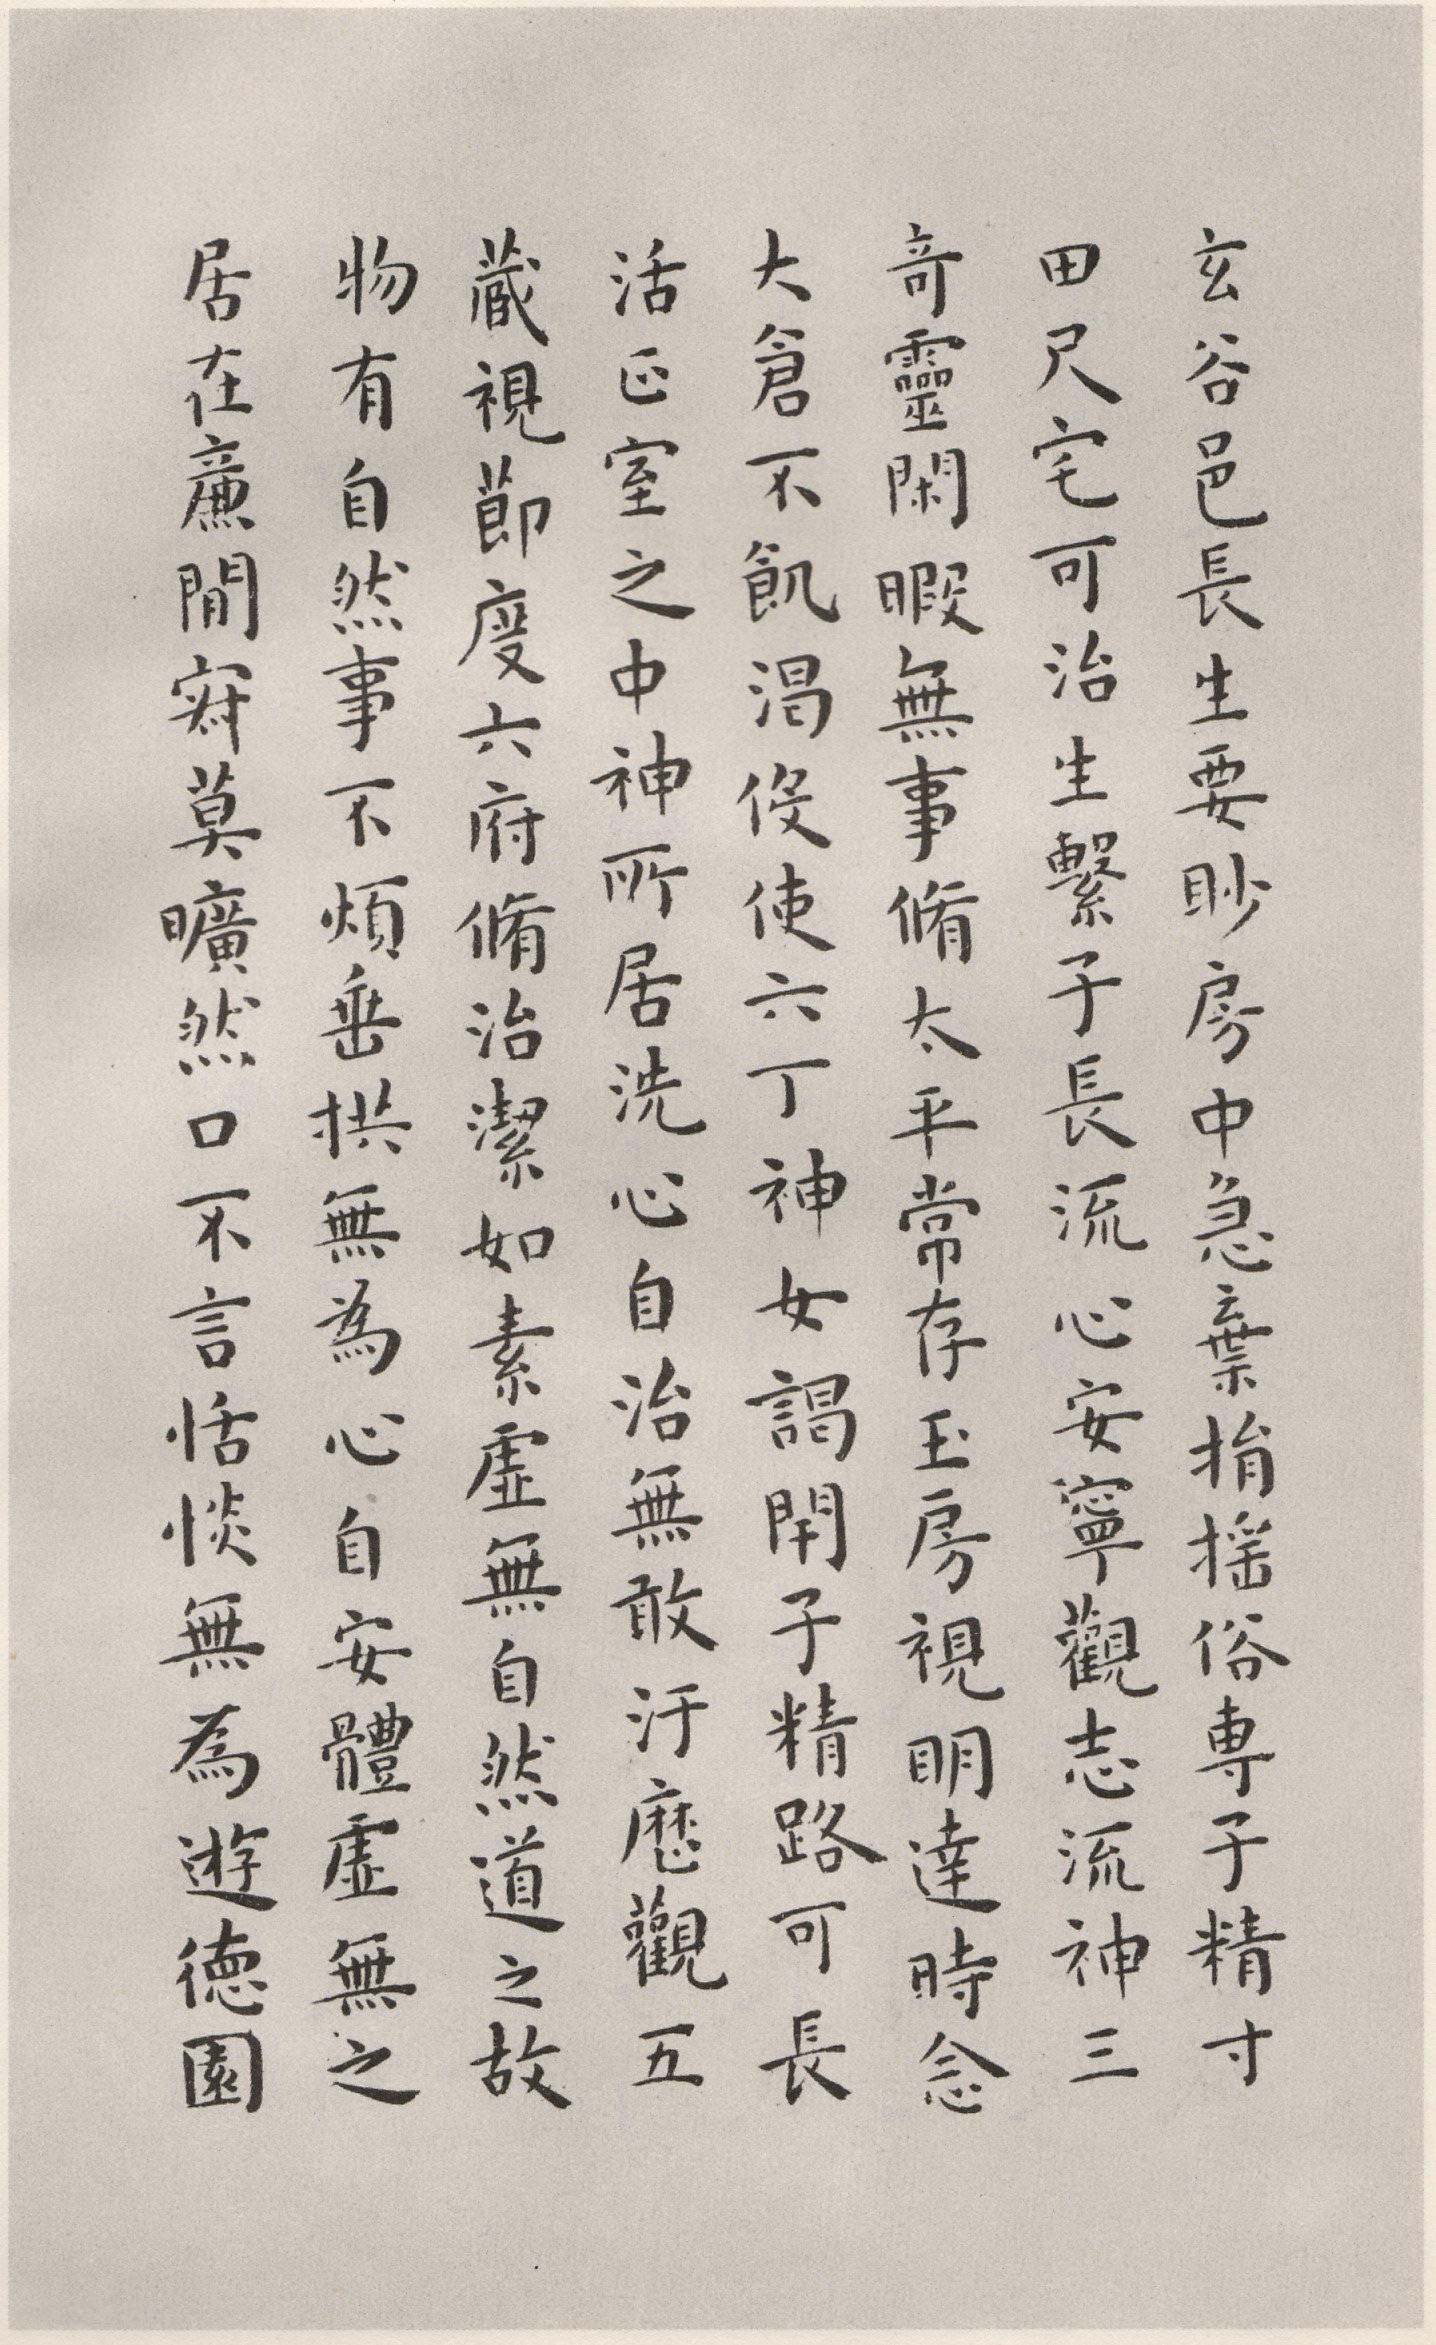 玄谷邑長生要眇房中急棄捐揺俗専子精寸
田尺宅可治生繫子長流心安寧觀志流神三
竒靈閑暇無事脩太平常存玉房視明達時念
大倉不飢渇伇使六丁神女謁開子精路可長
活正室之中神所居洗心自治無敢汙歷觀五
藏視節度六府脩治潔如素虛無自然道之故
物有自然事不煩垂拱無為心自安體虛無之
居在廉間寂莫曠然口不言恬惔無為遊德園